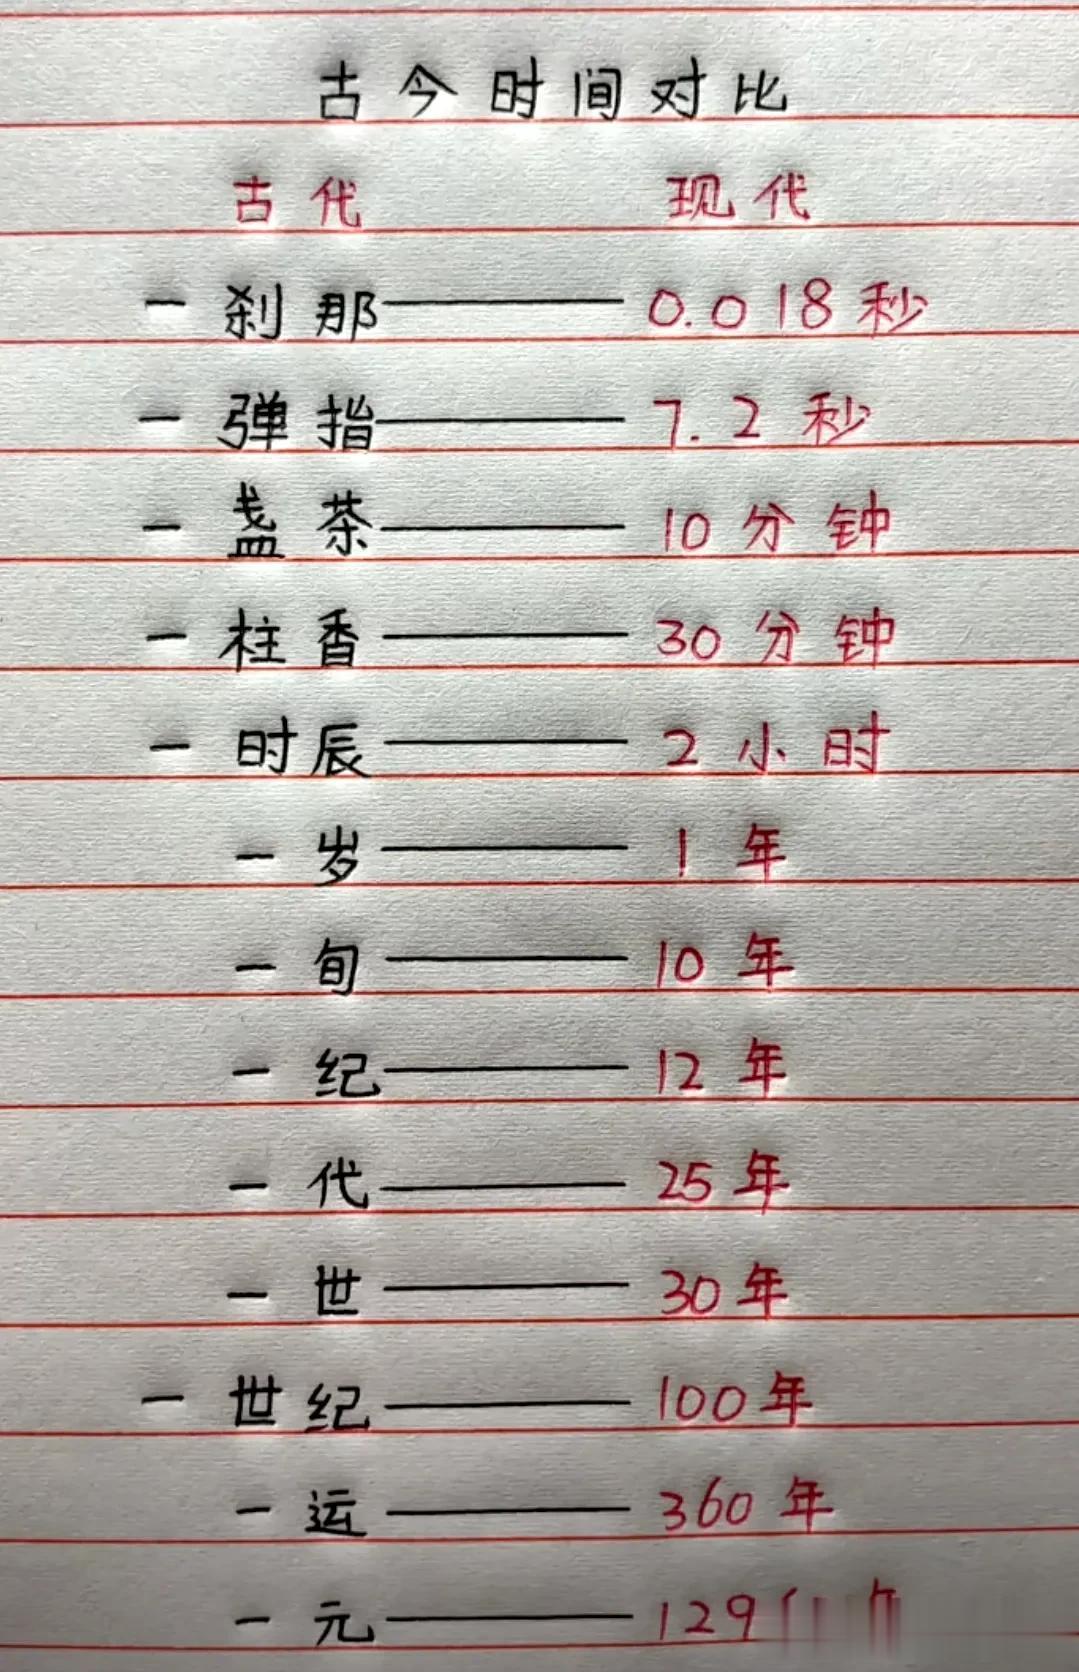 古今时间对比
古代 现代
一刹那——0.018秒
一弹指——7.2秒
一盏茶——10分钟
一柱香——30分钟
一时辰——2小时
一岁——1年
一旬——10年
一纪——12年
一代——25年
一世——30年
一世纪——100年
一运——360年
一元——129